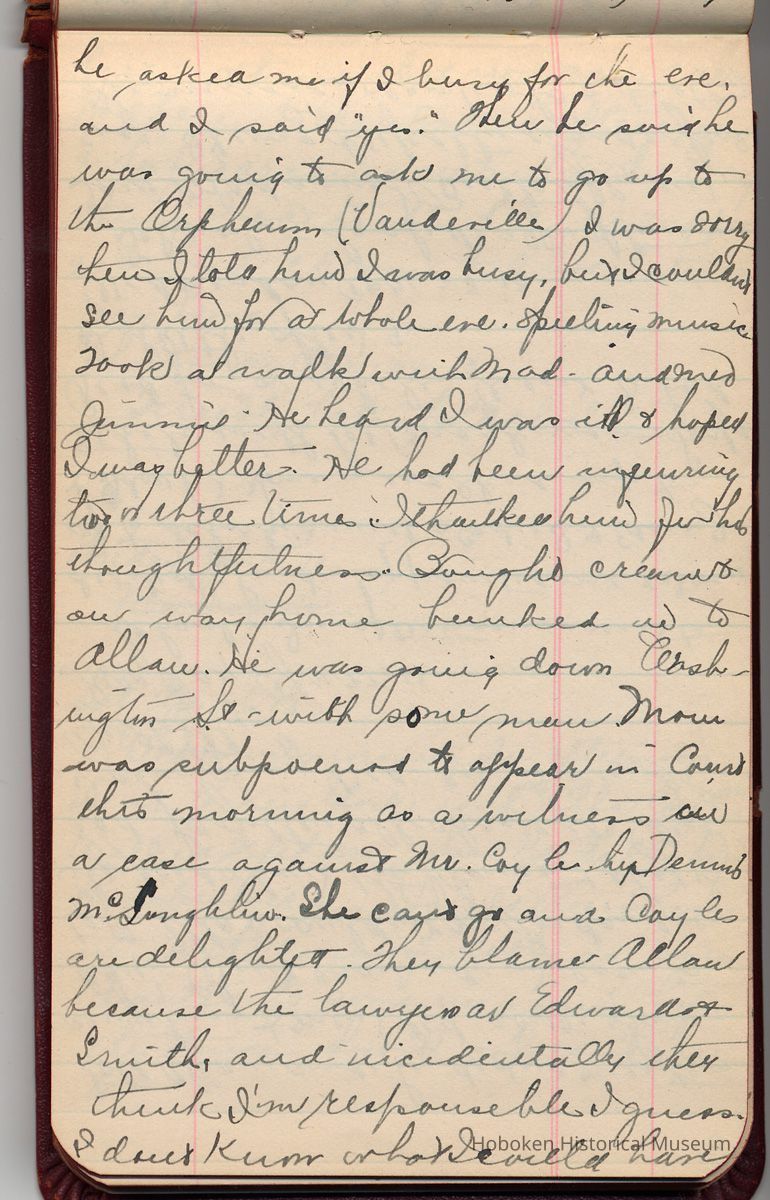 he asked me if I busy for the eve.
and I said "yes." Then he said he
was going to ask me to go up to
the Orpheum (Vaudeville) I was sorry
hen I told him I was busy, but I couldnt
see him for a whole eve. spieling music
Took a walk with Mad - and met
Jimmie. He heard I was ill & hoped
I way better. He had been inquiring
two or three times. I thanked him for his
thoughtfulness. Bought cream &
on way home bunked in to
Allan. He was going down Wash-
ington St - with some man. Mom
was subpoenad to appear in Court
this morning as a witness in
a case against Mr. Coyle by Dennis
McLoughlin. She cant go and Coyles
are delighted. They blame Allan
because the lawyers are Edwards &
Smith, and incidentally they
think I'm responseble I guess.
I dont know what I could have
Hoboken Historical Museum